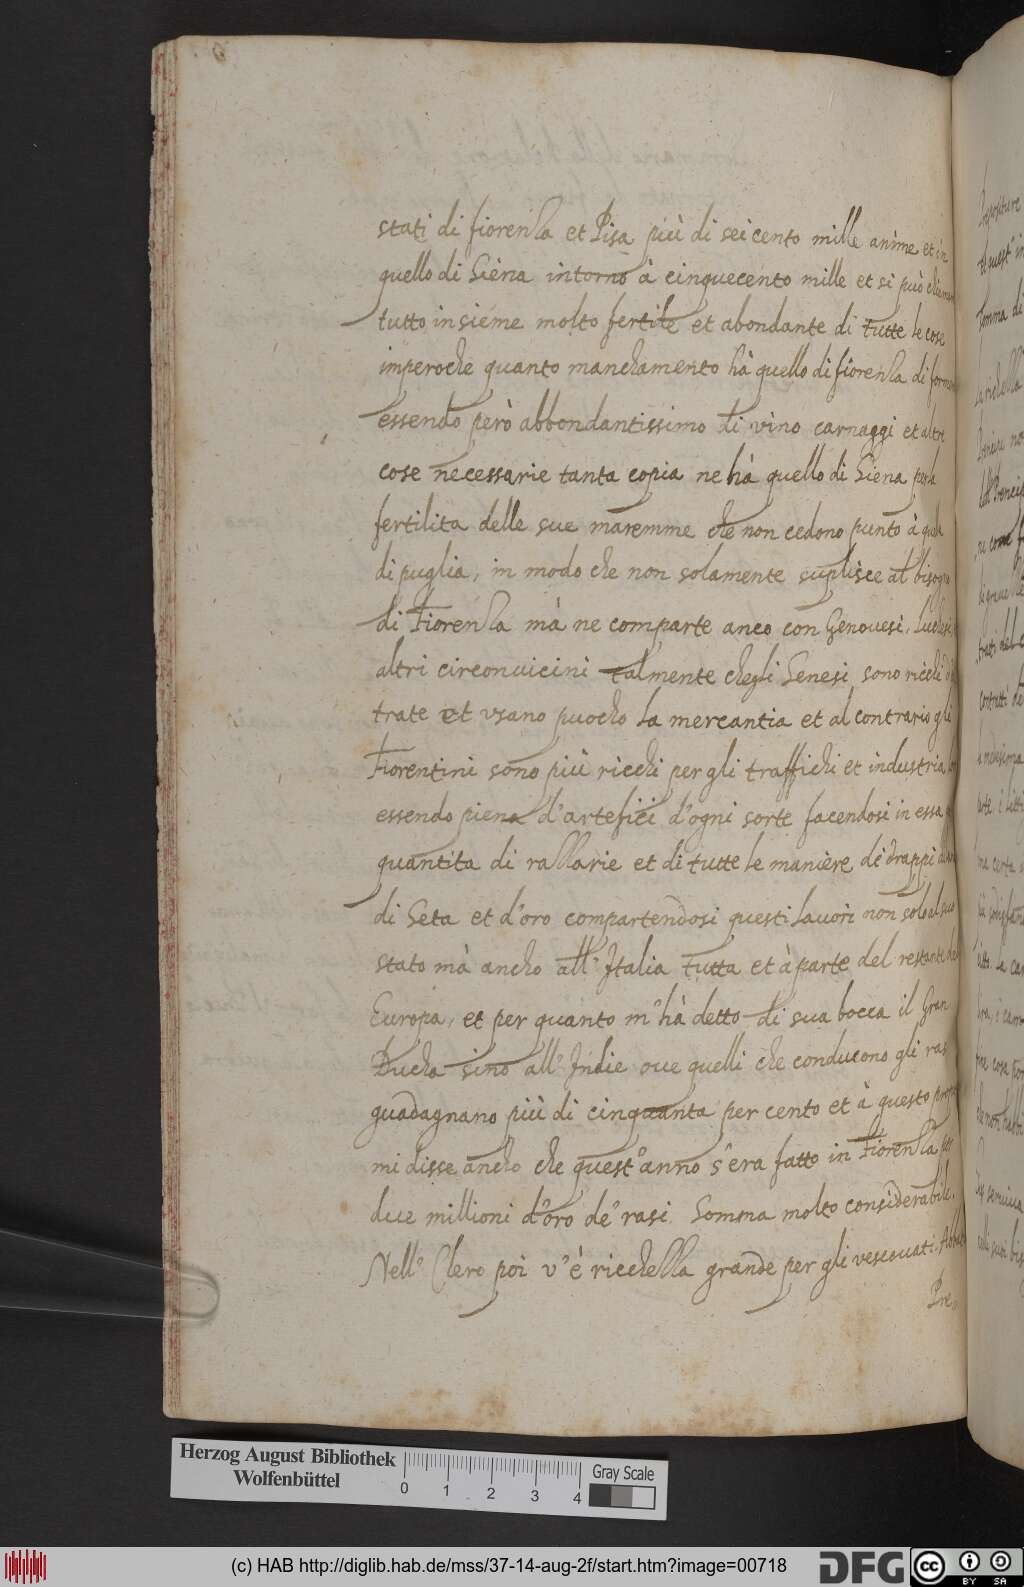 stati di fiorenza et Pisa più di sei cento mille anime et in
quello di Siena intorno à cinquecento mille et si può
tutto insieme molto fertile et abondante di tutte le cose
imperoche quanto manchamento hà quello di fiorenza di
essendo però abbondantissimo di vino carnaggi et altre
cose necessarie tanta copia ne hà quello di Siena per la
fertilita delle sue maremme che non cedono punto à
di puglia, in modo che non solamente suplisce al bisogno
di Fiorenza mà ne comparte anco con Genovesi,
altri circonuicini talmente chegli Senesi sono ricchi
trate et vsano puocho la mercantia et al contrario gli
Fiorentini sono più ricchi per gli traffichi et industria
essendo piena d'artefici d'ogni sorte facendosi in essa
quantita di razzarie et di tutte le maniere de drappi
di Seta et d'oro compartendosi questi lauori non solo al suo
stato mà ancho all'Italia tutta et à parte del restante
Europa, et per quanto m'hà detto di sua bocca il Gran
Ducha sino all'Indie oue quelli che conducono gli rasi
guadagnano più di cinquanta per cento et à questo
mi disse ancho che quest'anno s'era fatto in Fiorenza per
due millioni d'oro de' rasi Somma molto considerabile.
Nell' Clero poi v'è ricchezza grande per gli vescouati
Pre
Herzog August Bibliothek
Wolfenbüttel
0 1 2 3 4
Gray Scale
(c) HAB http://diglib.hab.de/mss/37-14-aug-2f/start.htm?image=00718
DFG
cc BY SA